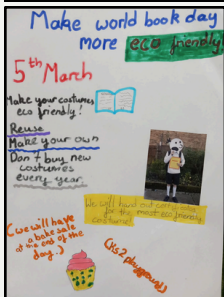 Make world book day
more eco friendly!
5th March
Make your costumes
eco friendly!
Reuse
Make your own
Don't buy new
costumes
every year
We will hand out every
for the most eco friendly
costume!
(we will have
a bake sale
at the end of the
day.)
(KS2 playground)